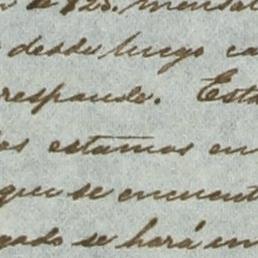 de $25. mensual
desde luego ca
responde. Esta
es estamos en
que se encuent
gado se hará en